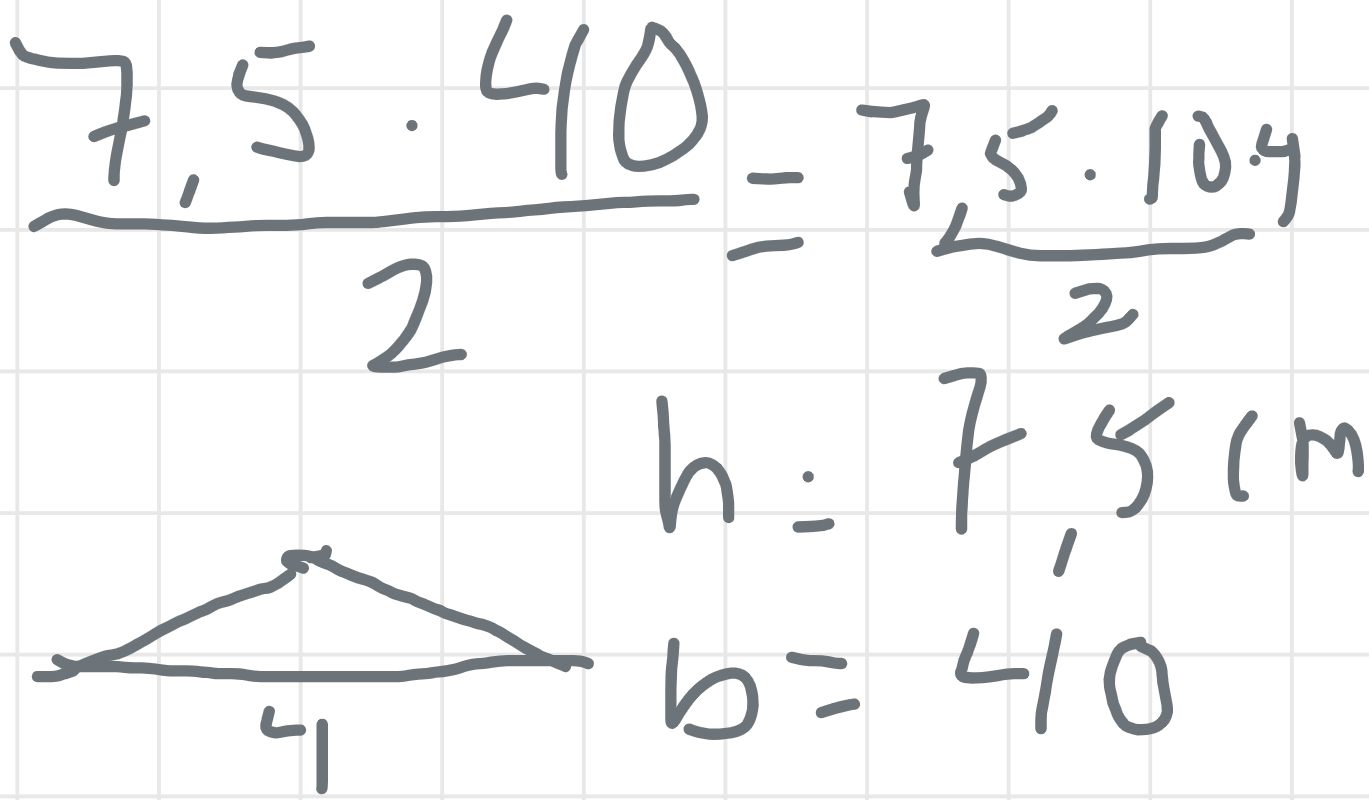 7,5 · 40 / 2 = 7,5 · 10 · 4 / 2
h = 7,5 cm
b = 40
4